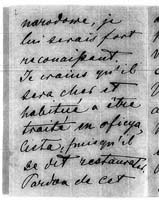 narodowe, je
lui serais fort
reconaissant
Je crains qu'il
sera cher et
habitué a être
traité en
puisqu'il
se dit restaurat.
Pardon de cet